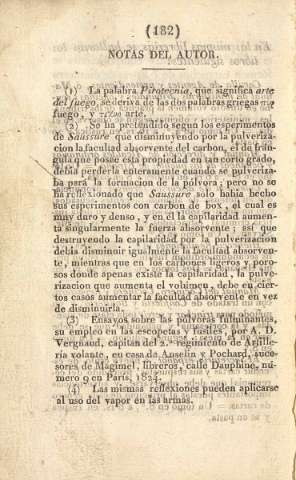 (182)
NOTAS DEL AUTOR.
(1) La palabra Pirotecnia, que significa arte
del fuego, se deriva de las dos palabras griegas
fuego, y arte.
(2) Se ha pretendido segun los esperimentos
de Saussure que disminuyendo por la pulveriza-
cion la facultad absorvente del carbon, el de frán-
gula que posée esta propiedad en tan corto grado,
debia perderla enteramente cuando se pulveriza-
ba para la formacion de la pólvora; pero no se
ha reflexionado que Saussure solo habia hecho
sus esperimentos con carbon de box, el cual es
muy duro y denso, y en él la capilaridad aumen-
ta singularmente la fuerza absorvente; asi que
destruyendo la capilaridad por la pulverizacion
debia disminuir igualmente la facultad absorven-
te, mientras que en los carbones ligeros y poro-
sos donde apenas existe la capilaridad, la pulve-
rizacion que aumenta el volúmen, debe en cier-
tos casos aumentar la facultad absorvente en vez
de disminuirla.
(3) Ensayos sobre las pólvoras fulminantes,
su empleo en las escopetas y fusiles, por A. D.
Vergnaud, capitan del 2.º regimiento de Artille-
ría volante, en casa de Anselin y Pochard, suce-
sores de Magimel, libreros, calle Dauphine, nú-
mero 9 en Paris, 1824.
(4) Las mismas reflexiones pueden aplicarse
al uso del vapor en las armas.